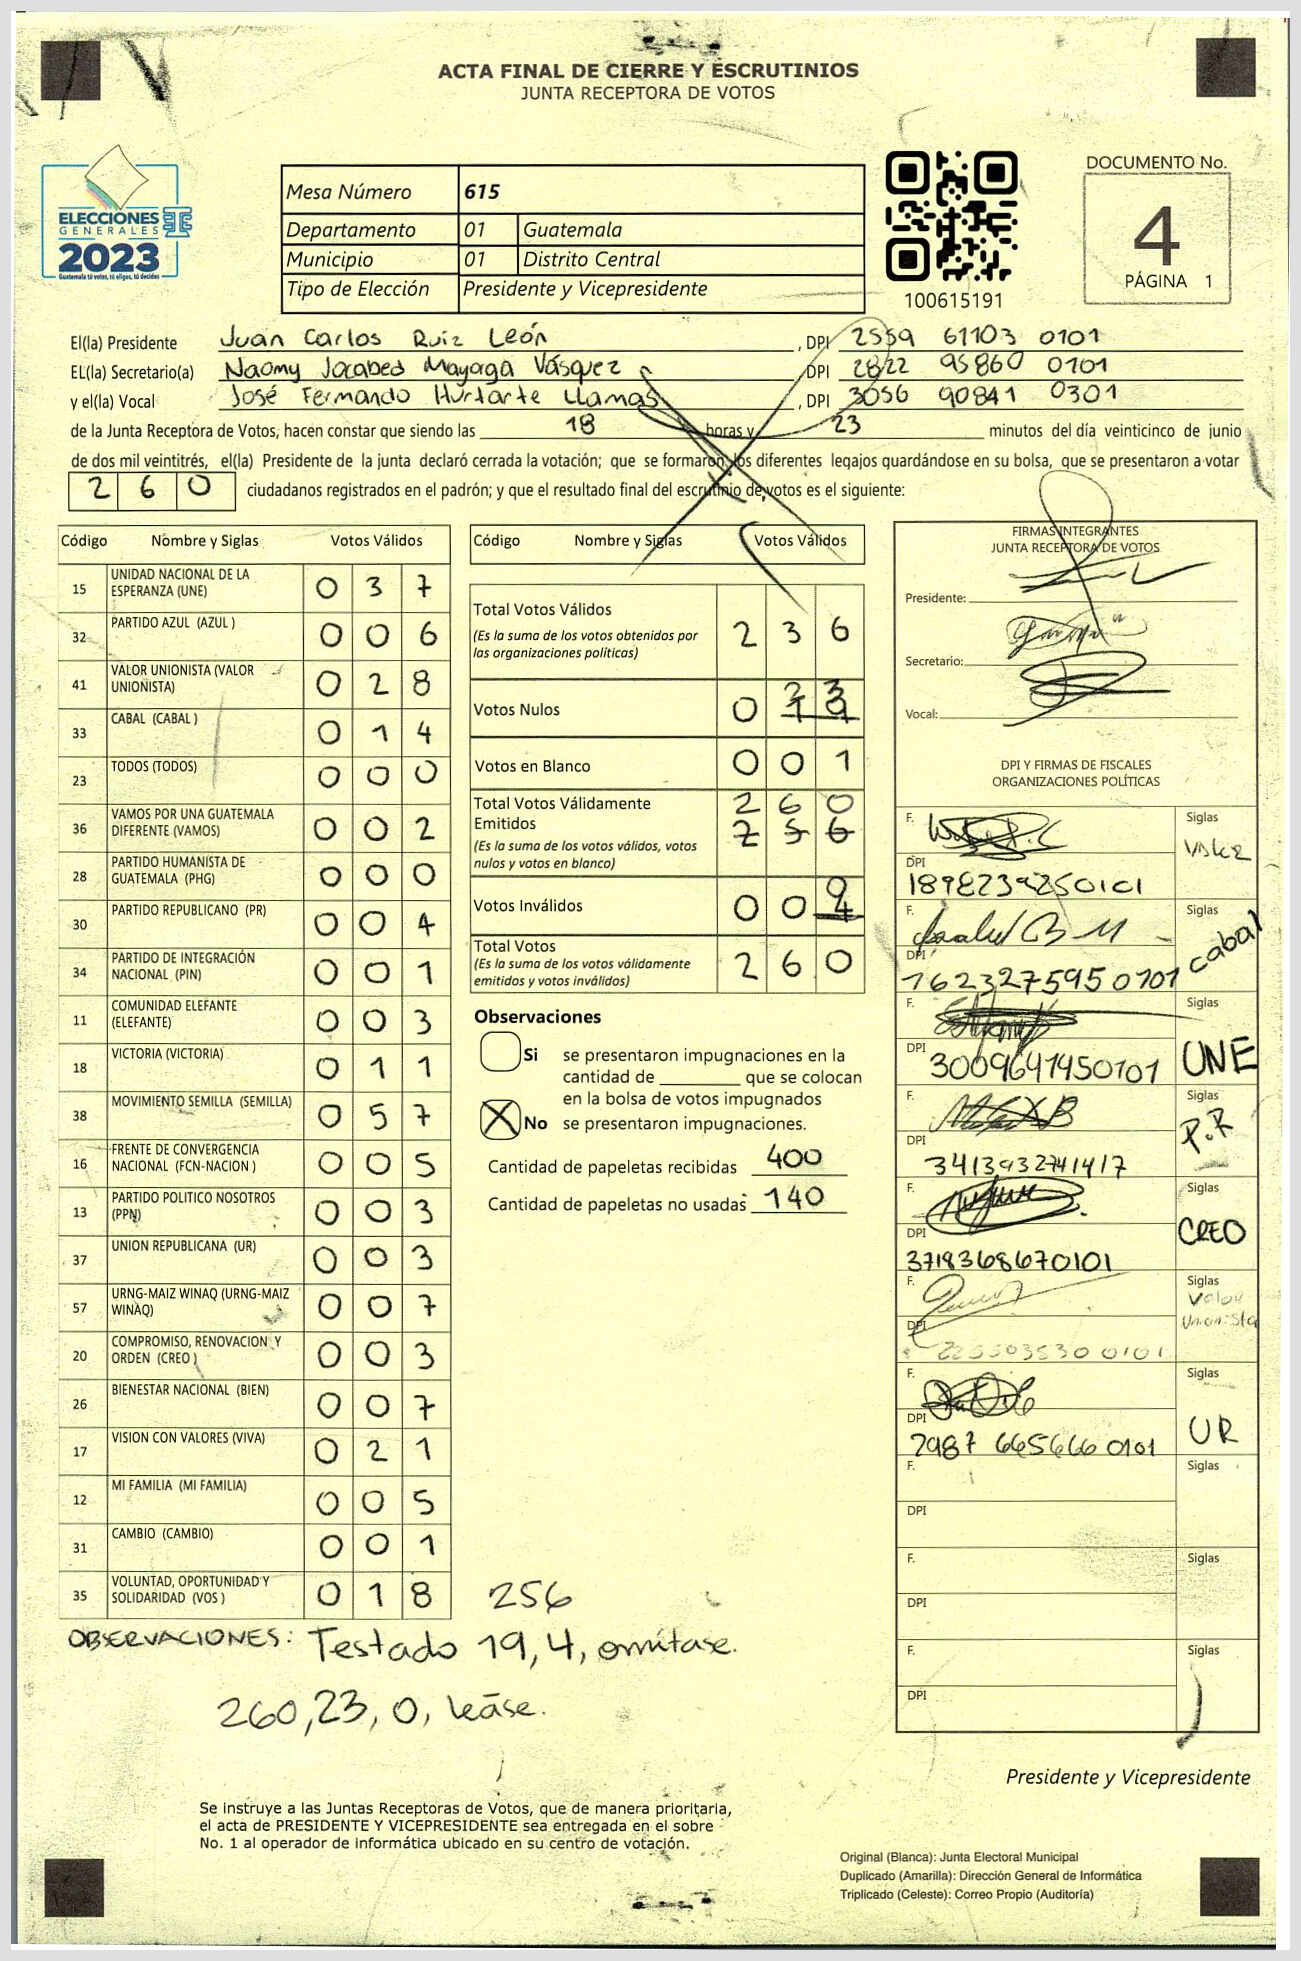 ACTA FINAL DE CIERRE Y ESCRUTINIOS
JUNTA RECEPTORA DE VOTOS
ELECCIONES
GENERALES
2023
Guatemala tú votas, tú eliges, tú decides
Mesa Número 615
Departamento 01 Guatemala
Municipio 01 Distrito Central
Tipo de Elección Presidente y Vicepresidente
100615191
DOCUMENTO No.
4
PÁGINA 1
El(la) Presidente Juan Carlos Ruiz León, DPI 2559 61103 0101
EL(la) Secretario(a) Naomy Jocabed Mayorga Vásquez, DPI 2822 95860 0101
y el(la) Vocal José Fernando Hurtarte Llamas, DPI 3056 90841 0301
de la Junta Receptora de Votos, hacen constar que siendo las 18 horas y 23 minutos del día veinticinco de junio
de dos mil veintitrés, el(la) Presidente de la junta declaró cerrada la votación; que se formaron los diferentes legajos guardándose en su bolsa, que se presentaron a votar
260 ciudadanos registrados en el padrón; y que el resultado final del escrutinio de votos es el siguiente:
Código Nombre y Siglas Votos Válidos
15 UNIDAD NACIONAL DE LA ESPERANZA (UNE) 0 3 7
32 PARTIDO AZUL (AZUL ) 0 0 6
41 VALOR UNIONISTA (VALOR UNIONISTA) 0 2 8
33 CABAL (CABAL ) 0 1 4
23 TODOS (TODOS) 0 0 0
36 VAMOS POR UNA GUATEMALA DIFERENTE (VAMOS) 0 0 2
28 PARTIDO HUMANISTA DE GUATEMALA (PHG) 0 0 0
30 PARTIDO REPUBLICANO (PR) 0 0 4
34 PARTIDO DE INTEGRACIÓN NACIONAL (PIN) 0 0 1
11 COMUNIDAD ELEFANTE (ELEFANTE) 0 0 3
18 VICTORIA (VICTORIA) 0 1 1
38 MOVIMIENTO SEMILLA (SEMILLA) 0 5 7
16 FRENTE DE CONVERGENCIA NACIONAL (FCN-NACION ) 0 0 5
13 PARTIDO POLITICO NOSOTROS (PPN) 0 0 3
37 UNION REPUBLICANA (UR) 0 0 3
57 URNG-MAIZ WINAQ (URNG-MAIZ WINAQ) 0 0 7
20 COMPROMISO, RENOVACION Y ORDEN (CREO ) 0 0 3
26 BIENESTAR NACIONAL (BIEN) 0 0 7
17 VISION CON VALORES (VIVA) 0 2 1
12 MI FAMILIA (MI FAMILIA) 0 0 5
31 CAMBIO (CAMBIO) 0 0 1
35 VOLUNTAD, OPORTUNIDAD Y SOLIDARIDAD (VOS ) 0 1 8
Código Nombre y Siglas Votos Válidos
Total Votos Válidos 2 3 6
(Es la suma de los votos obtenidos por
las organizaciones políticas)
2 3
Votos Nulos 0 1 9
Votos en Blanco 0 0 1
Total Votos Válidamente 2 6 0
Emitidos 2 5 6
(Es la suma de los votos válidos, votos
nulos y votos en blanco)
0
Votos Inválidos 0 0 4
Total Votos 2 6 0
(Es la suma de los votos válidamente
emitidos y votos inválidos)
Observaciones
Si se presentaron impugnaciones en la
cantidad de ________ que se colocan
en la bolsa de votos impugnados
X No se presentaron impugnaciones.
Cantidad de papeletas recibidas 400
Cantidad de papeletas no usadas 140
256
FIRMAS INTEGRANTES
JUNTA RECEPTORA DE VOTOS
Presidente:
Secretario:
Vocal:
DPI Y FIRMAS DE FISCALES
ORGANIZACIONES POLÍTICAS
F. Siglas
DPI 1898239250101
F. Siglas cabal
DPI 1623275950101
F. Siglas UNE
DPI 3009641450101
F. Siglas P.R
DPI 3413932741417
F. Siglas CREO
DPI 3718368670101
F. Siglas Valor Unionista
DPI 2255035300101
F. Siglas UR
DPI 7987 665666 0101
F. Siglas
DPI
F. Siglas
DPI
F. Siglas
DPI
OBSERVACIONES: Testado 19, 4, omítase.
260, 23, 0, léase.
Presidente y Vicepresidente
Se instruye a las Juntas Receptoras de Votos, que de manera prioritaria,
el acta de PRESIDENTE Y VICEPRESIDENTE sea entregada en el sobre
No. 1 al operador de informática ubicado en su centro de votación.
Original (Blanca): Junta Electoral Municipal
Duplicado (Amarilla): Dirección General de Informática
Triplicado (Celeste): Correo Propio (Auditoría)